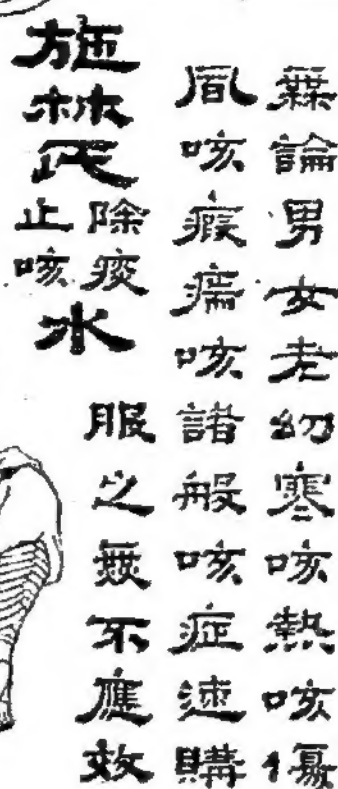 無論男女老幼寒咳熱咳傷
風咳瘕癆咳諸般咳症速購
施林氏除痰止咳水
服之無不應效